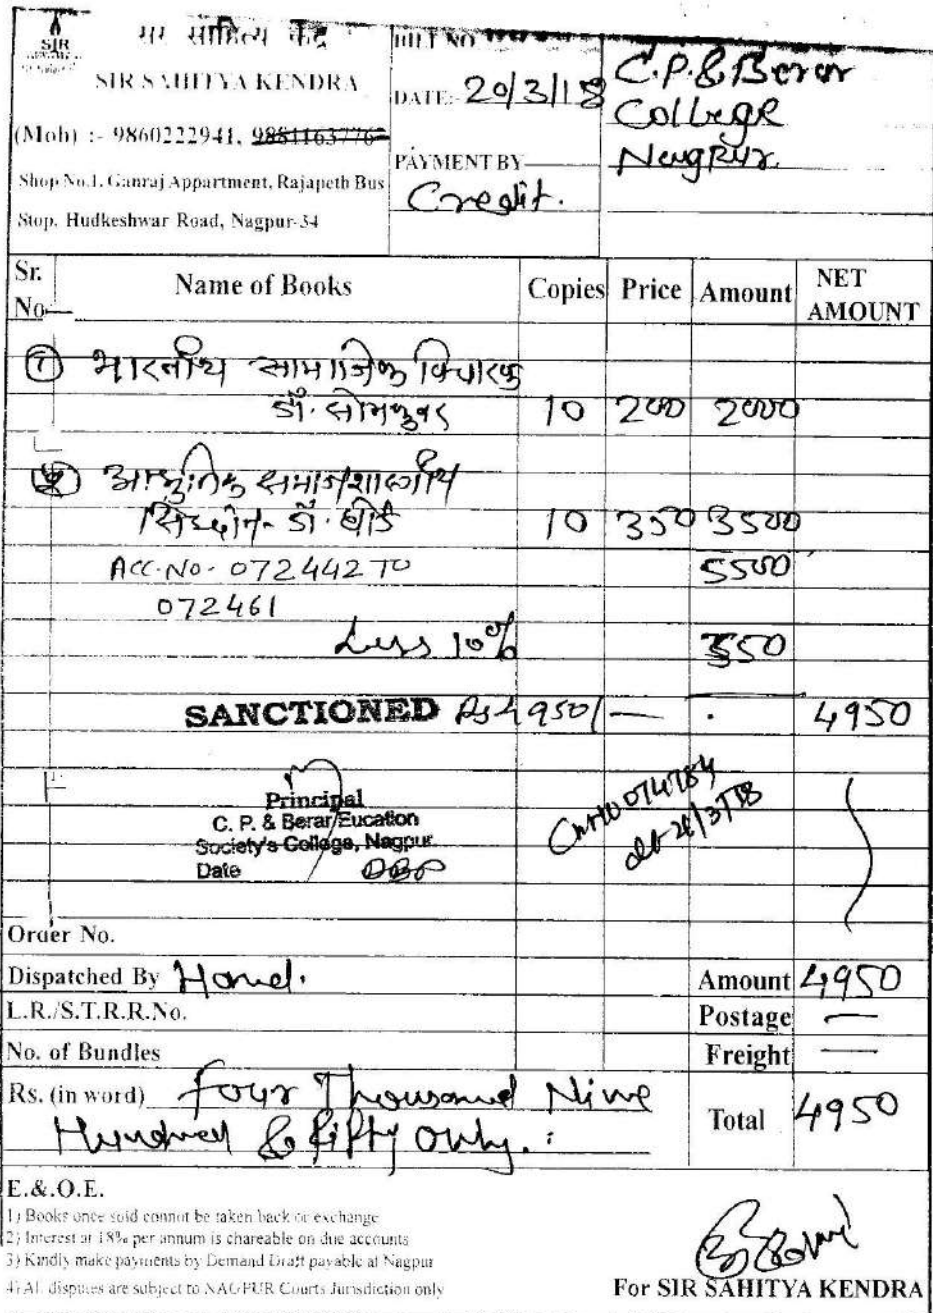 SIR
सर साहित्य केंद्र
SIR SAHITYA KENDRA
(Mob) :- 9860222941, 9881163776
Shop No.1, Ganraj Appartment, Rajapeth Bus
Stop, Hudkeshwar Road, Nagpur-34
BILL NO
DATE:- 20/3/18
PAYMENT BY
Credit.
C.P. & Berar
College
Nagpur.
Sr. No Name of Books Copies Price Amount NET AMOUNT
① भारतीय सामाजिक विचारक
डॉ. सोमकुवर 10 200 2000
② आधुनिक समाजशास्त्रीय
सिद्धांत - डॉ. बोर्डे 10 350 3500
Acc. No. 072442 TO 5500
072461
Less 10% 550
SANCTIONED Rs 4950/- 4950
Principal
C. P. & Berar Eucation
Society's College, Nagpur.
Date
Order No.
Dispatched By Hand. Amount 4950
L.R./S.T.R.R.No. Postage —
No. of Bundles Freight —
Rs. (in word) Four Thousand Nine
Hundred & Fifty Only. Total 4950
E.&.O.E.
1) Books once sold connot be taken back or exchange
2) Interest at 18% per annum is chareable on due accounts
3) Kindly make payments by Demand Draft payable at Nagpur
4) Al. disputes are subject to NAGPUR Courts Jurisdiction only
For SIR SAHITYA KENDRA